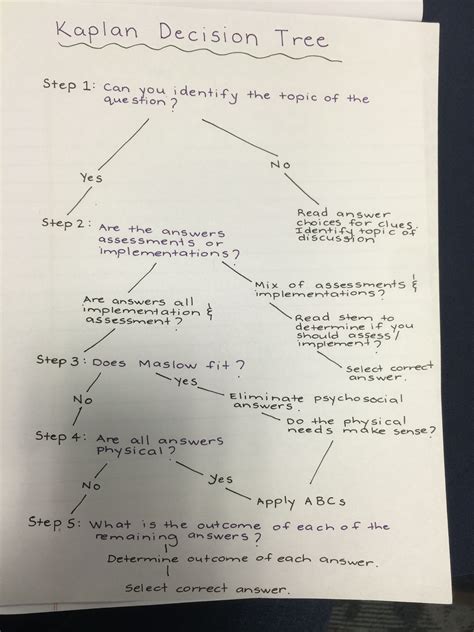 Kaplan Decision Tree
Step 1: Can you identify the topic of the
question?
Yes
No
Read answer
choices for clues.
Identify topic of
discussion
Step 2: Are the answers
assessments or
implementations?
Mix of assessments &
implementations?
Are answers all
implementation &
assessment?
Read stem to
determine if you
should assess/
implement?
Select correct
answer.
Step 3: Does Maslow fit?
Yes
No
Eliminate psychosocial
answers.
Do the physical
needs make sense?
Step 4: Are all answers
physical?
Yes
No
Apply ABCs
Step 5: What is the outcome of each of the
remaining answers?
Determine outcome of each answer.
Select correct answer.